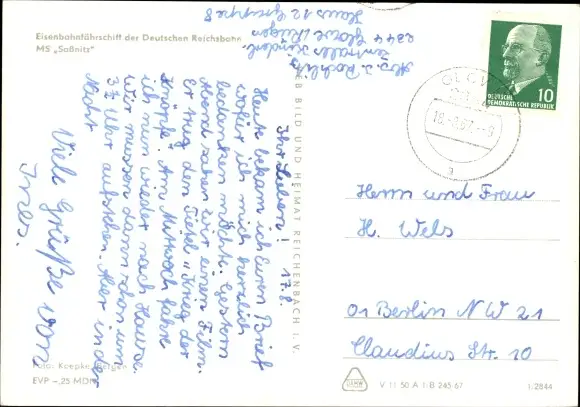 Eisenbahnfährschiff der Deutschen Reichsbahn
MS „Saßnitz"
Abs. I. Rochlitz
Zentrales Kinderl.
2344 Glowe / Rügen
Haus 12 Gruppe 8
Ihr Lieben! 17.8.
Heute bekam ich Euren Brief
wofür ich mich herzlich
bedanken möchte. Gestern
Abend sahen wir einen Film.
Er trug den Titel „Krieg der
Knöpfe". Am Mittwoch fahre
ich nun wieder nach Hause.
Wir müssen dann schon um
3¾ Uhr aufstehen. Aber in der
Nacht
Viele Grüße von
Ines.
VEB BILD UND HEIMAT REICHENBACH I. V.
DEUTSCHE
DEMOKRATISCHE REPUBLIK
10
Herrn und Frau
H. Wels
01 Berlin NW 21
Claudius Str. 10
Foto: Koepke, Bergen
EVP -,25 MDN
V 11 50 A 1/B 245/67
1/2844